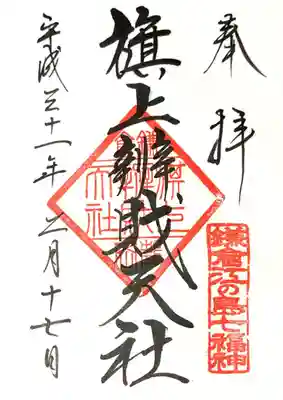 奉拝
鎌倉江の島七福神
旗上辨財天社
平成三十一年二月十七日